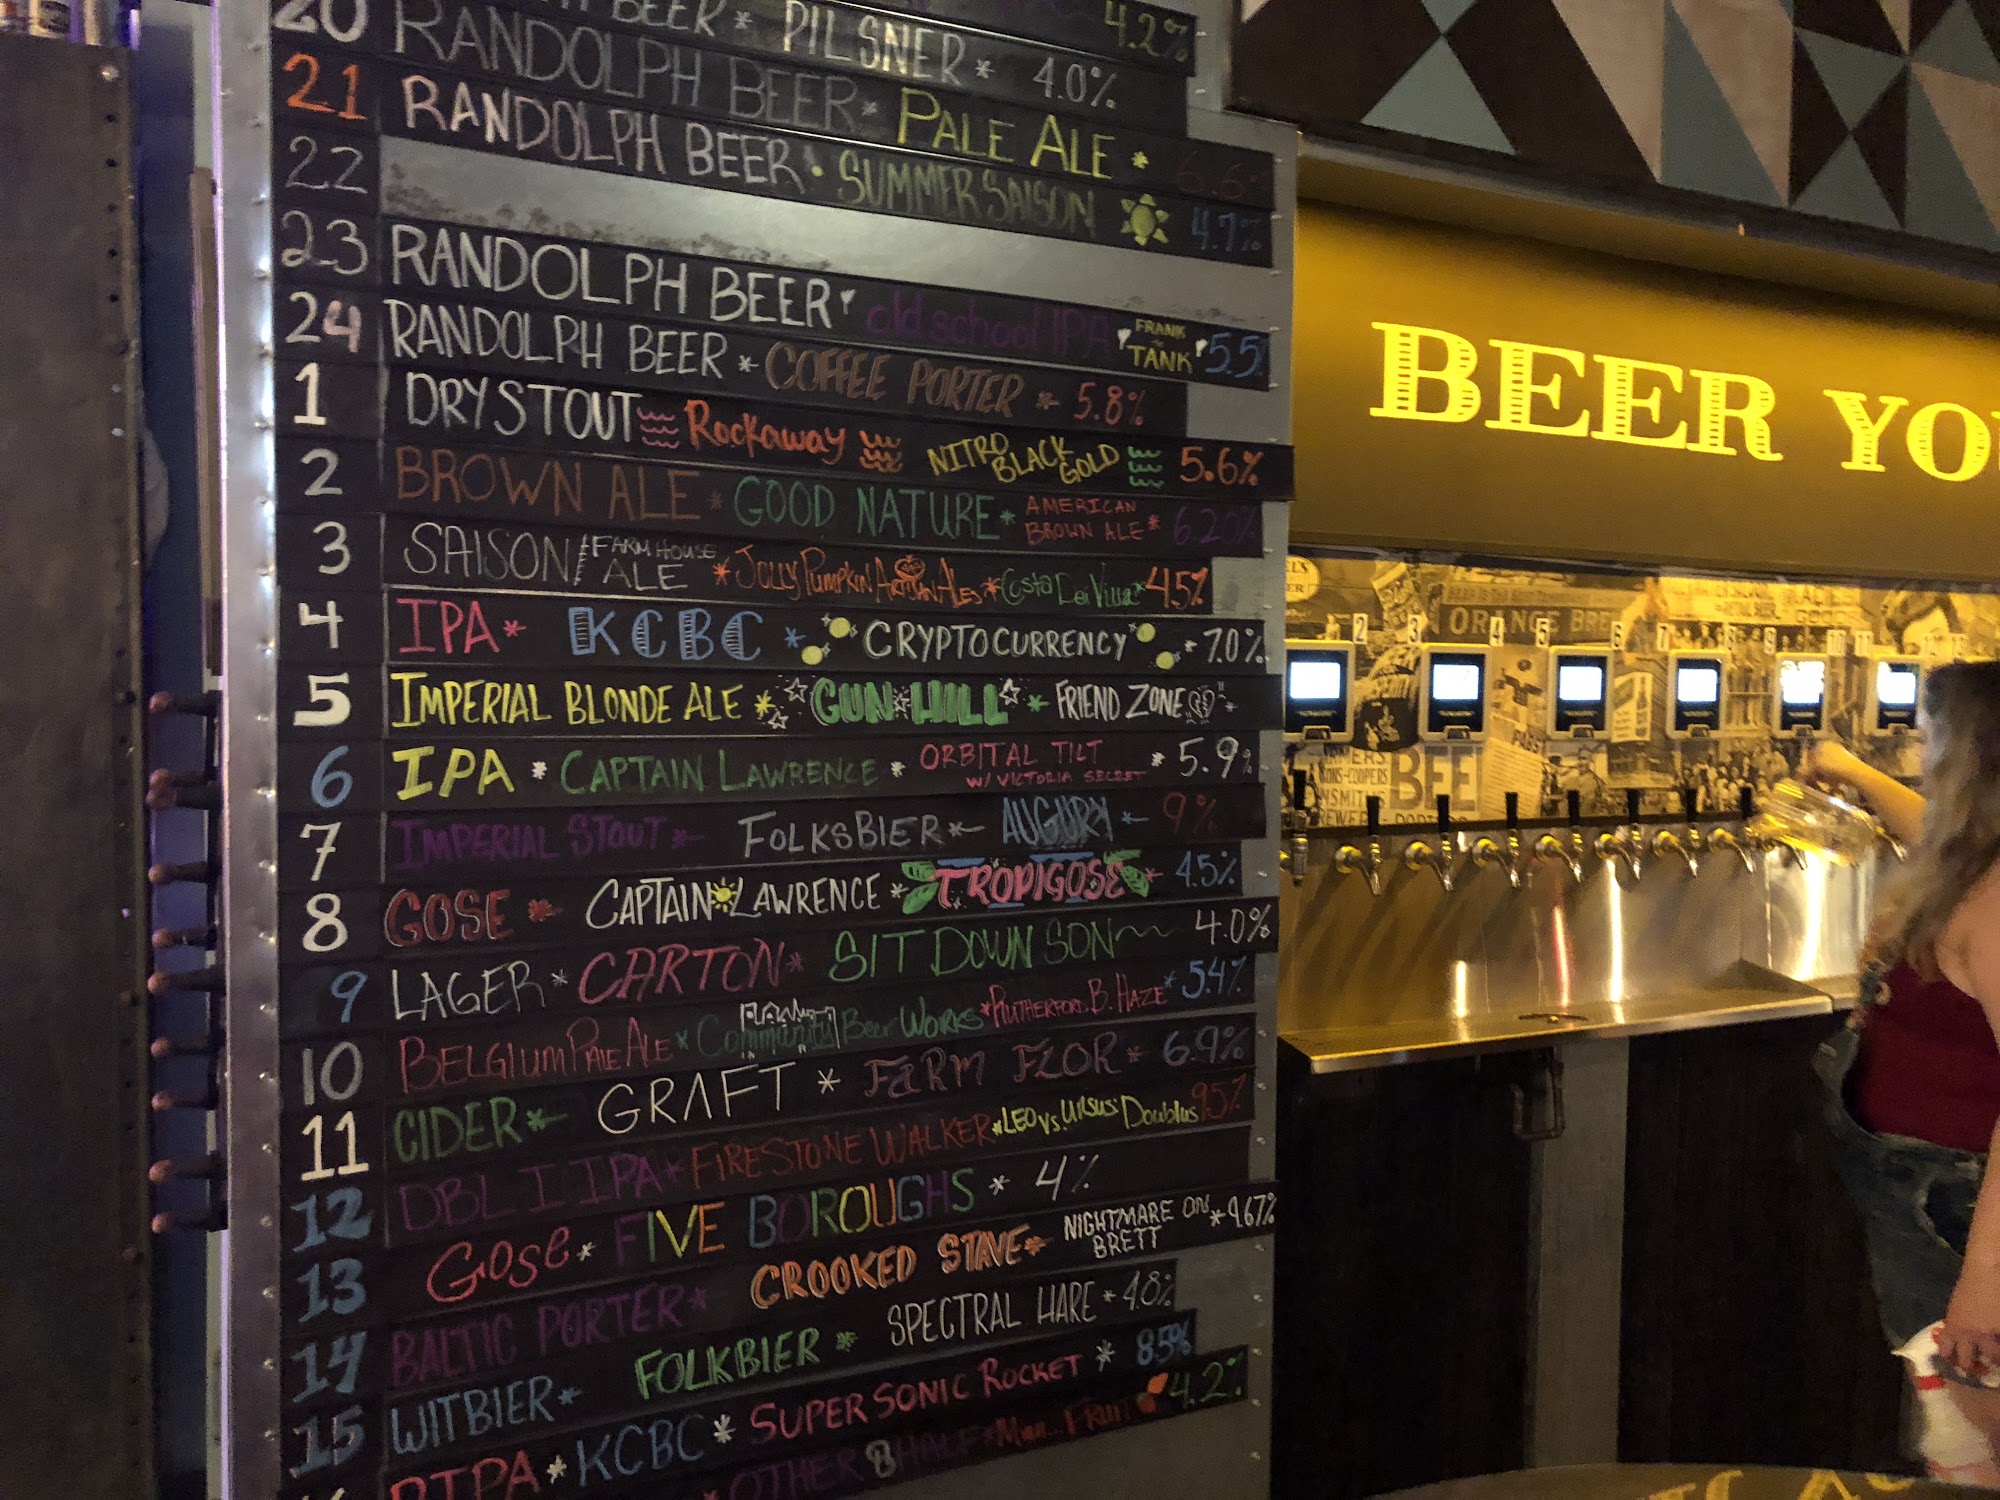 20 BEER * PILSNER * 4.0%
4.2%
21 RANDOLPH BEER * PALE ALE * 6.6
22 RANDOLPH BEER • SUMMER SAISON 4.7%
23 RANDOLPH BEER old school IPA FRANK TANK 5.5%
24 RANDOLPH BEER * COFFEE PORTER * 5.8%
1 DRY STOUT Rockaway NITRO BLACK GOLD 5.6%
2 BROWN ALE * GOOD NATURE * AMERICAN BROWN ALE * 6.20%
3 SAISON / FARMHOUSE ALE * JOLLY PUMPKIN ARTISAN ALES * Costa Dei Villa * 4.5%
4 IPA * KCBC * CRYPTOCURRENCY * 7.0%
5 IMPERIAL BLONDE ALE * GUN HILL * FRIEND ZONE
6 IPA * CAPTAIN LAWRENCE * ORBITAL TILT W/ VICTORIA SECRET * 5.9%
7 IMPERIAL STOUT * FOLKSBIER * AUGURY * 9%
8 GOSE * CAPTAIN LAWRENCE * TROPIGOSE * 4.5%
9 LAGER * CARTON * SIT DOWN SON 4.0%
10 BELGIUM PALE ALE * Community Beer Works * RUTHERFORD B. HAZE * 5.4%
11 CIDER * GRAFT * FARM FLOR * 6.9%
12 DBL IPA * FIRESTONE WALKER * LEO vs. URSUS: Doublus 9.5%
13 GOSE * FIVE BOROUGHS * 4%
14 BALTIC PORTER * CROOKED STAVE * NIGHTMARE ON BRETT * 9.67%
15 WITBIER * FOLKBIER * SPECTRAL HARE * 4.8%
KCBC * SUPERSONIC ROCKET * 8.5%
OTHER HALF * FRUIT 4.2%
BEER YO
ORANGE BRE
2 3 4 5 6 7 8 9 10 11
BEE